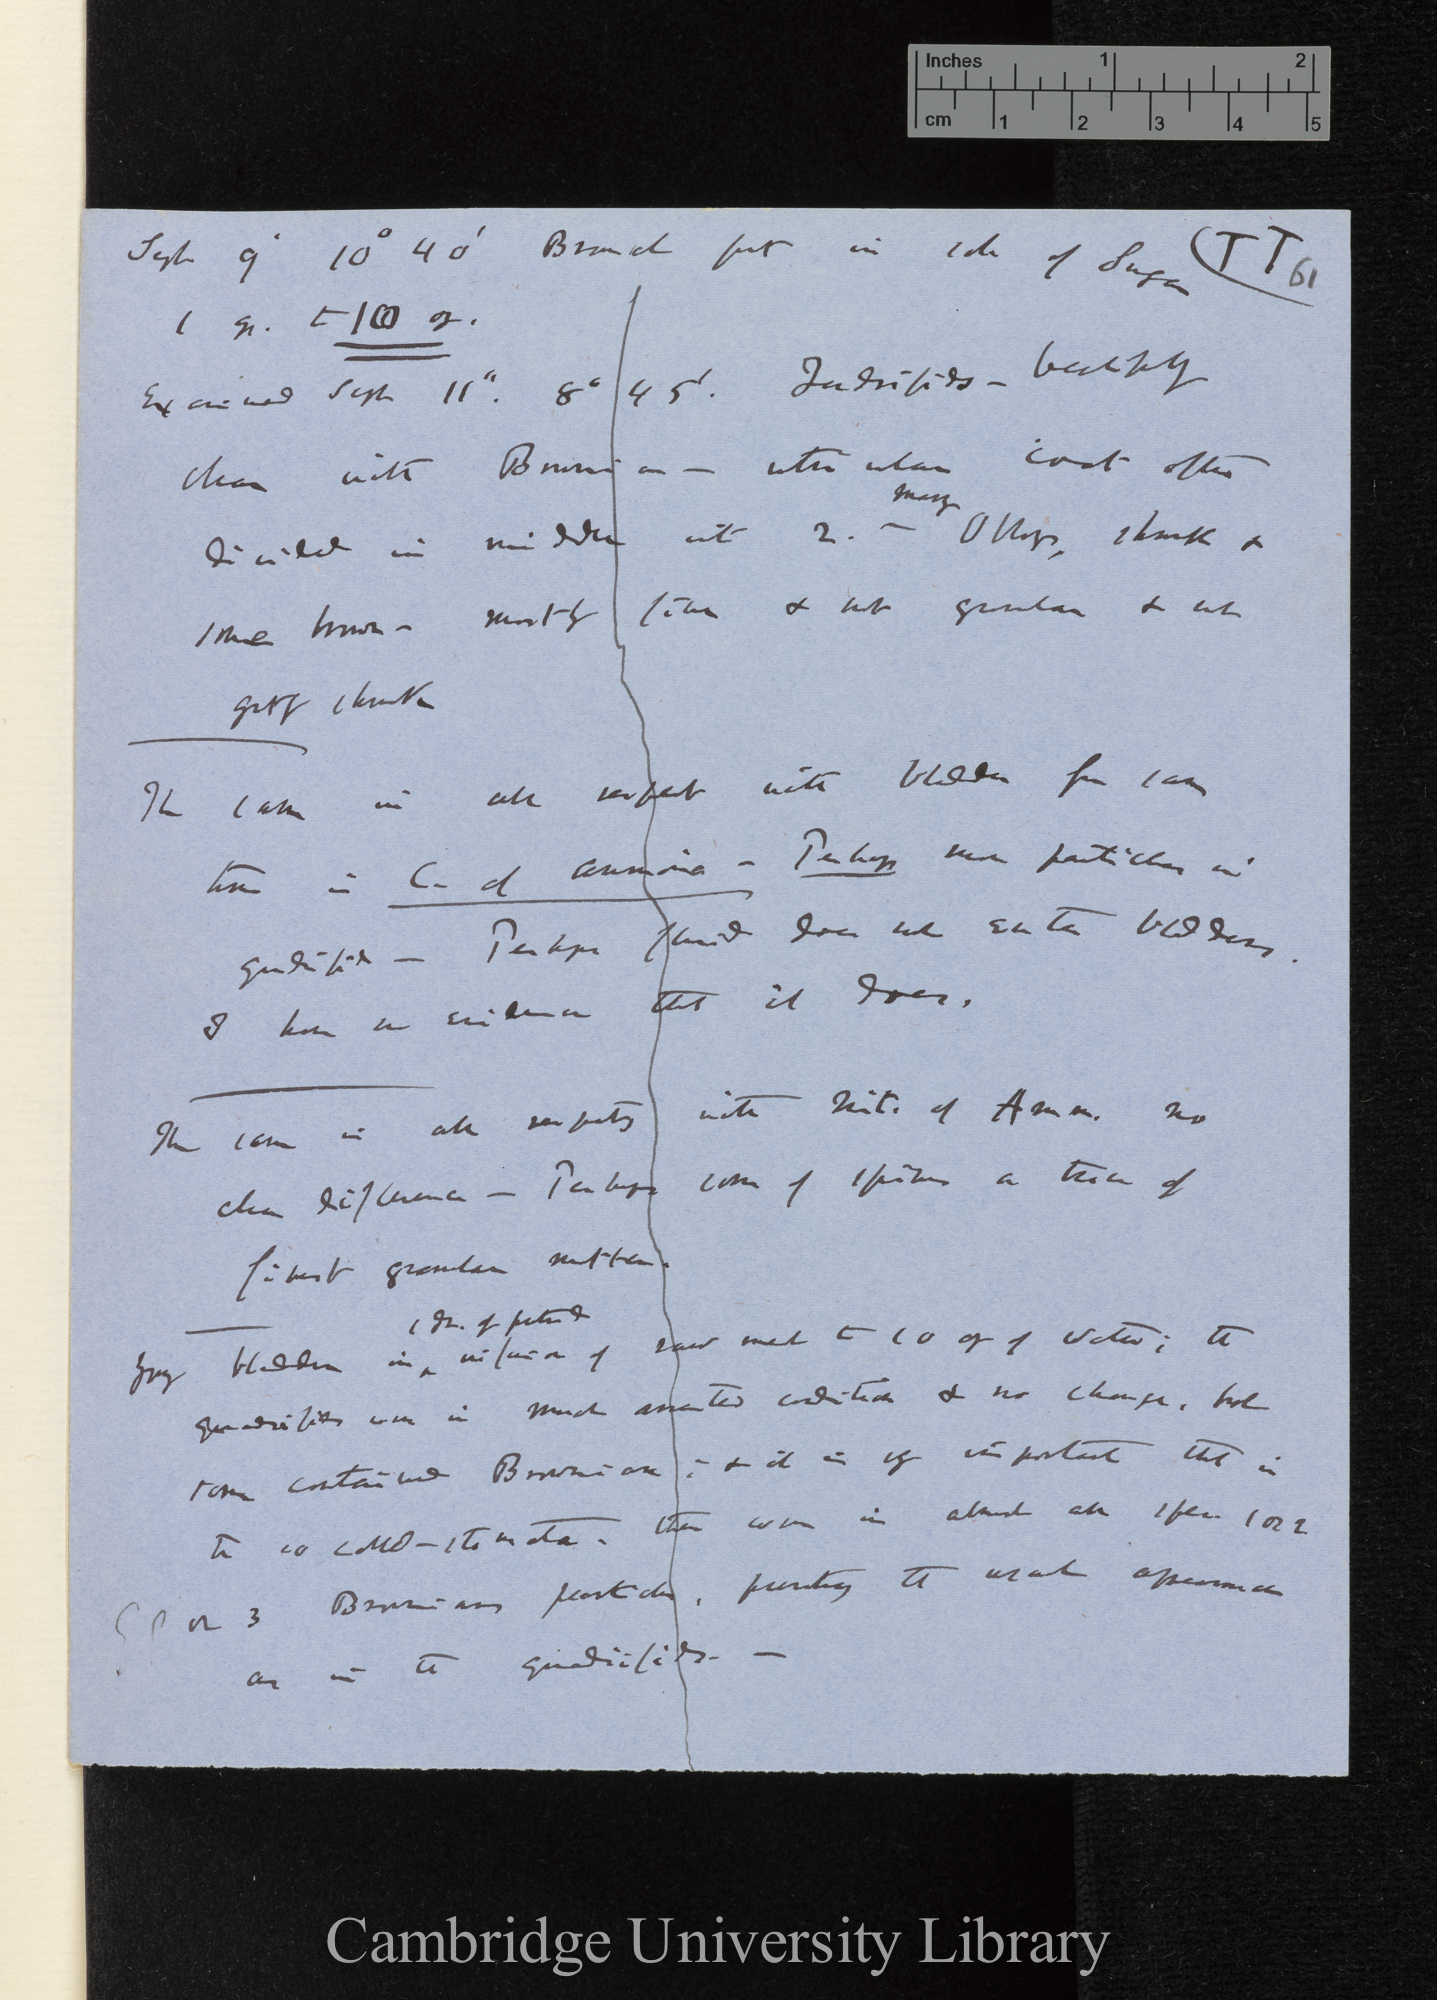 Inches 1 2
cm 1 2 3 4 5
Sept 9' 10° 40' Branch put in sol of Sugar (TT 61
1 gr. to 100 oz.
Examined Sept 11". 8° 45'. Quadrifids — beautifully
clear with Brownian — utricular coat often
divided in middle into 2. — many Oblongs, shrunk &
some brown — mostly fine & not granular & not
greatly shrunk
The same in all respect with bladder for same
time in C— of ammonia — Perhaps more particles in
quadrifids — Perhaps fluid does not enter bladders.
I have no evidence that it does.
The same in all respects with Nit. of Amm. no
clear difference — Perhaps some of spikes a trace of
finest granular matter.
1 dr. of putrid
Young bladder in ^ infusion of raw meat to 10 oz of Water; the
quadrifids were in much arrested condition & no change, but
some contained Brownian; & it is v important that in
the so called-stomata. there were in almost all space 1 or 2
or 3 Brownians particles, presenting the usual appearance
as in the quadrifids. —
Cambridge University Library